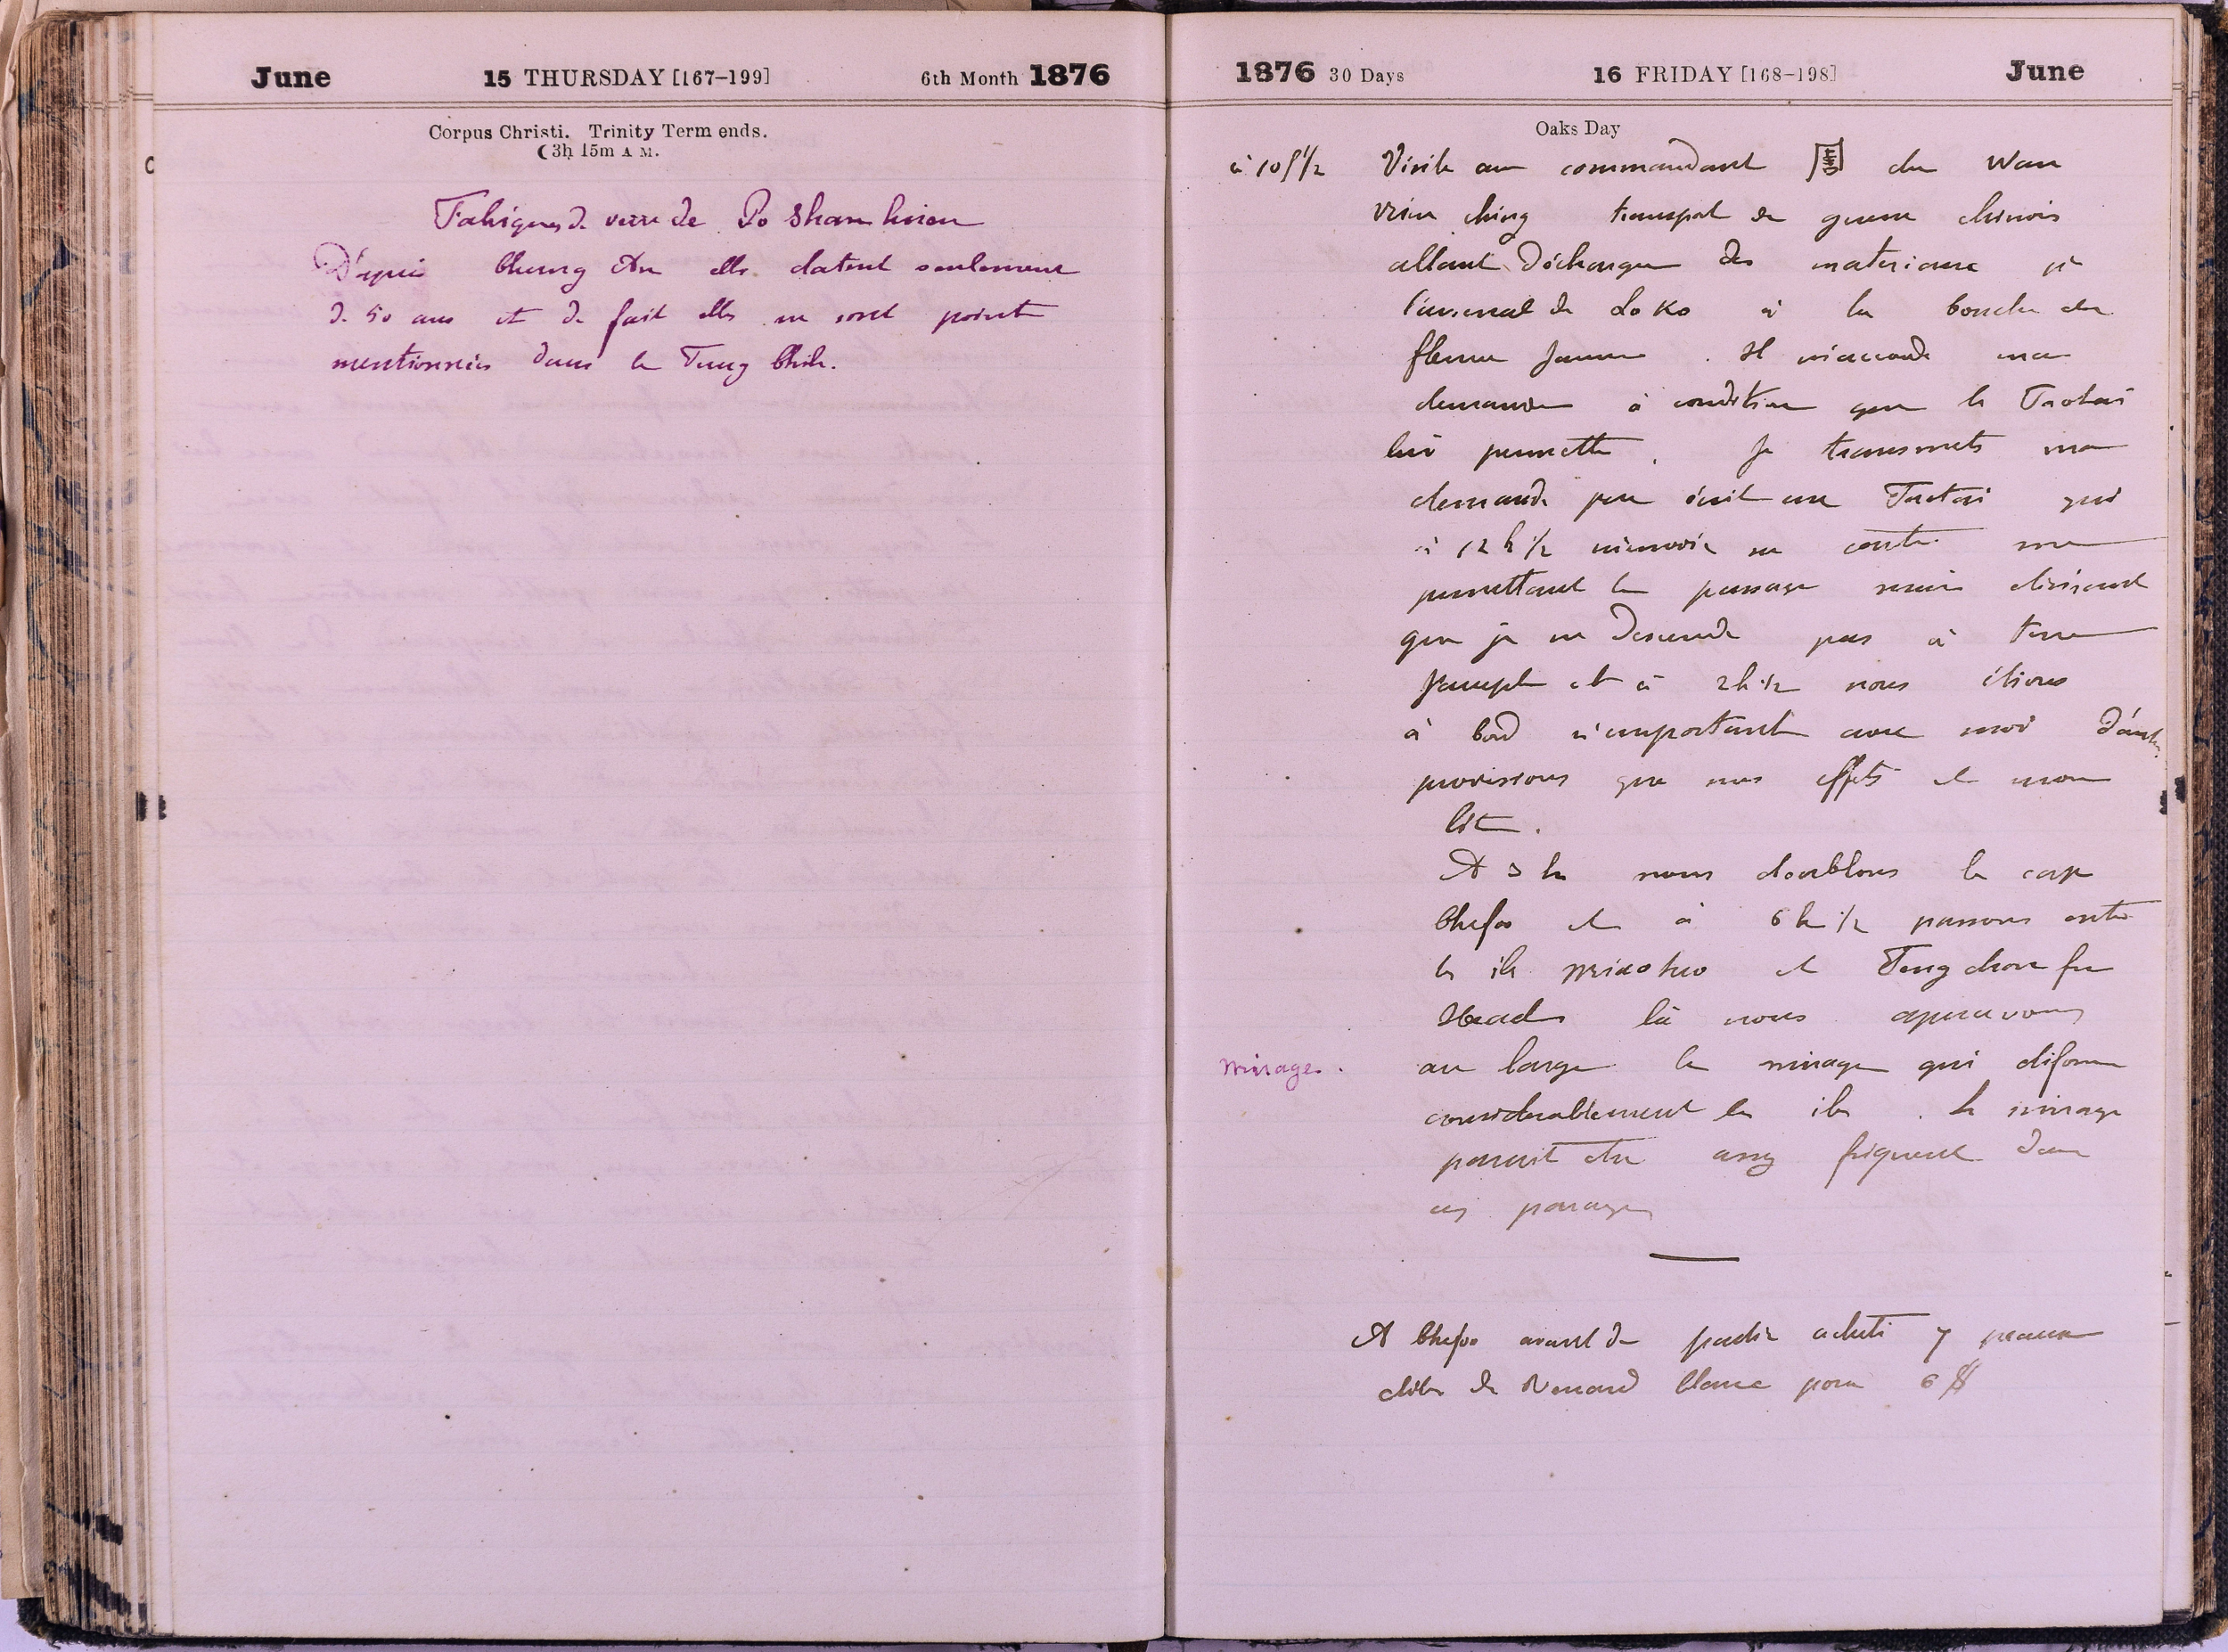 June 15 THURSDAY [167-199] 6th Month 1876
Corpus Christi. Trinity Term ends.
☾ 3h 15m A M.
Fabriques de verre de Po Shan hien
D'après Chung elles datent seulement
de 50 ans et de fait elles ne sont point
mentionnées dans le Tung Chih.
1876 30 Days 16 FRIDAY [168-198] June
Oaks Day
à 10h 1/2 Visite au commandant du Wan
nien ching transport de guerre chinois
allant décharger des materiaux à
l'arsenal de Lo Ko à la bouche du
fleuve Jaune. Il m'accorde ma
demande à condition que le Taotai
lui permette. Je transmets ma
demande par écrit au Taotai qui
à 12 h 1/2 m'envoie sa carte me
permettant le passage mais désirant
que je ne descende pas à terre
J'accepte et à 2 h 1/2 nous étions
à bord n'emportant avec moi d'autres
provisions que mes effets et mon
lit.
A 3 h nous doublons le cap
Chefoo et à 6 h 1/2 passons entre
les iles Miao tao et Teng chow fu
Head là nous apercevons
mirage. au large le mirage qui déforme
considerablement les iles. Le mirage
parait etre assez fréquent dans
ces parages
A Chefoo avant de partir acheté 7 peaux
dites de Renard blanc pour 6 $